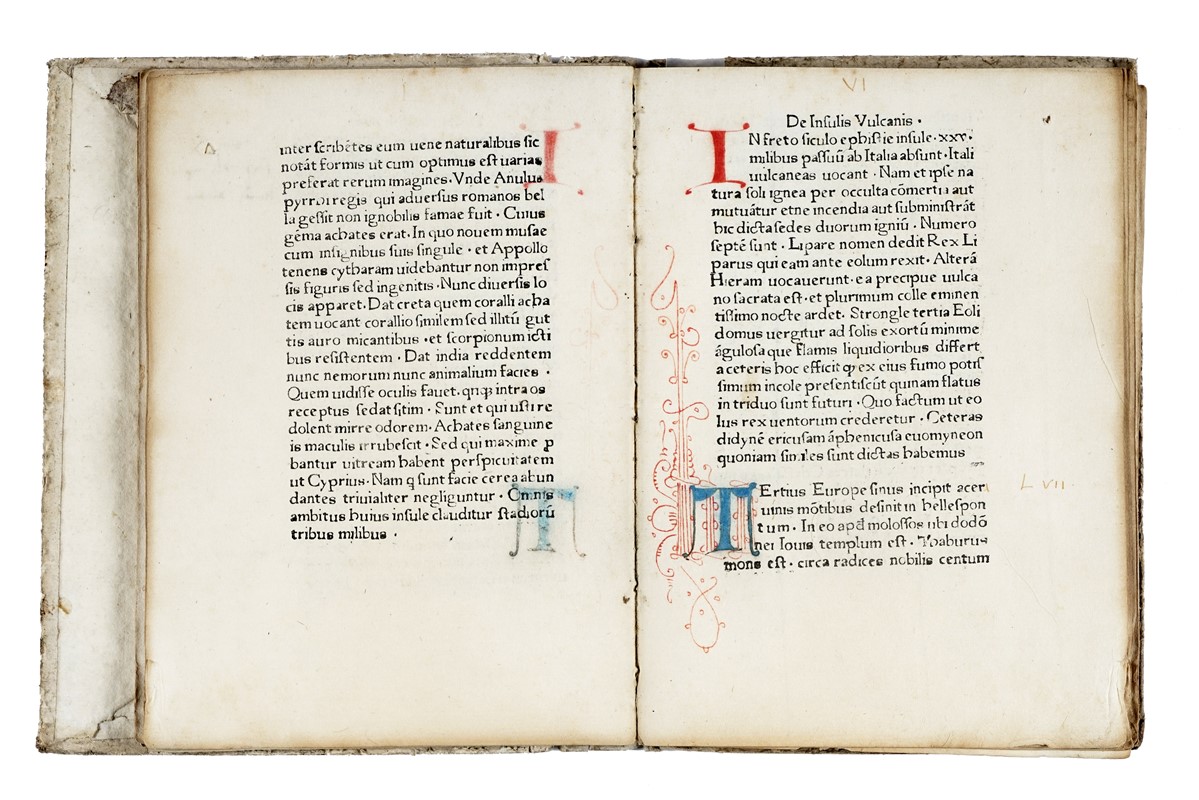 inter scribētes eum uene naturalibus sic
notāt formis ut cum optimus est uarias
preferat rerum imagines. Vnde Anulus
pyrrhi regis qui aduersus romanos bel
la gessit non ignobilis famae fuit · Cuius
gēma achates erat. In quo nouem musae
cum insignibus suis singule · et Appollo
tenens cytharam uidebantur non impres
sis figuris sed ingenitis · Nunc diuersis lo
cis apparet. Dat creta quem coralli acha
tem uocant corallio similem sed illitū gut
tis auro micantibus · et scorpionum icti
bus resistentem · Dat india reddentem
nunc nemorum nunc animalium facies ·
Quem uidisse oculis fauet. qnqȝ intra os
receptus sedat sitim · Sunt et qui usti re
dolent mirre odorem · Achates sanguine
is maculis irrubescit · Sed qui maxime ꝓ
bantur uitream habent perspicuitatem
ut Cyprius · Nam q sunt facie cerea abun
dantes triuialiter negliguntur · Omnis
ambitus huius insule clauditur stadiorū
tribus milibus ·
VI
De Insulis Vulcanis ·
IN freto siculo ephistie insule · xxv ·
milibus passuū ab Italia absunt · Itali
uulcaneas uocant · Nam et ipse na
tura soli ignea per occulta cōmertia aut
mutuātur et ne incendia aut subministrāt
hic dicta sedes duorum igniū · Numero
septē sunt · Lipare nomen dedit Rex Li
parus qui eam ante eolum rexit · Alterā
Hieram uocauerunt · ea precipue uulca
no sacrata est · et plurimum colle eminen
tissimo nocte ardet · Strongle tertia Eoli
domus uergitur ad solis exortū minime
āgulosa que flamis liquidioribus differt
a ceteris hoc efficit qȝ ex eius fumo potis
simum incole presentiscūt quinam flatus
in triduo sunt futuri · Quo factum ut eo
lus rex uentorum crederetur · Ceteras
didynē ericusam āphenicusa euomyneon
quoniam similes sunt dictas habemus
TErtius Europe sinus incipit acer
uinis mōtibus desinit in hellespon
tum · In eo apd molossos ubi dodō
nei Iouis templum est · Thaburus
mons est · circa radices nobilis centum
LVII ·